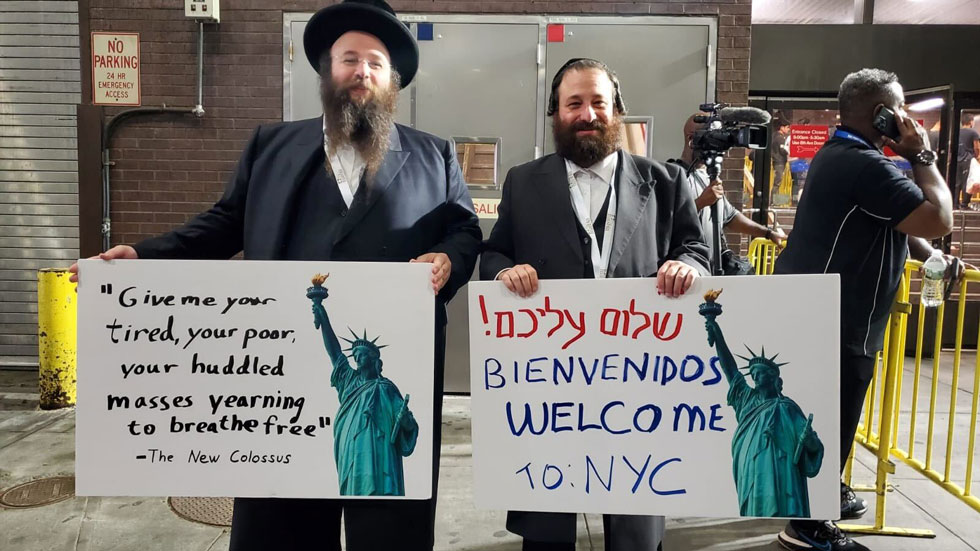 NO
PARKING
24 HR
EMERGENCY
ACCESS
"Give me your
tired, your poor,
your huddled
masses yearning
to breathe free"
-The New Colossus
שלום עליכם!
BIENVENIDOS
WELCOME
TO: NYC
SALI
Entrance Closed